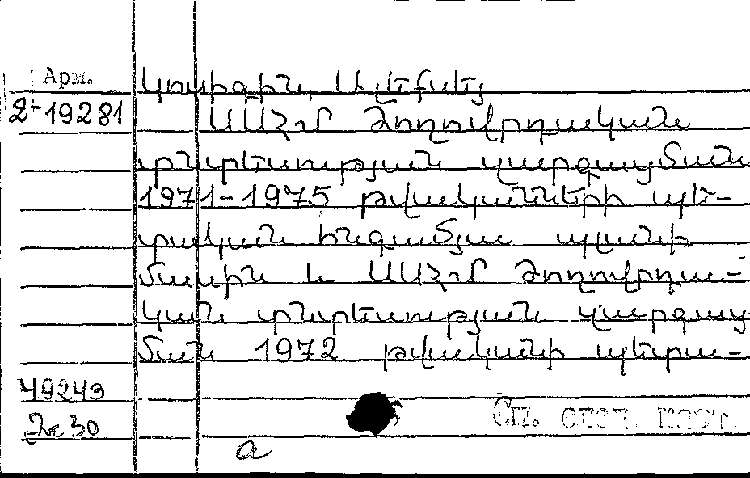 Арм.
2-19281
Կոսիգին, Ալեքսեյ
ՍՍՀՄ ժողովրդական
տնտեսության զարգացման
1971-1975 թվականների պե-
տական հնգամյա պլանի
մասին և ՍՍՀՄ ժողովրդա-
կան տնտեսության զարգաց
ման 1972 թվականի պետա-
49249
30
Сп.
а